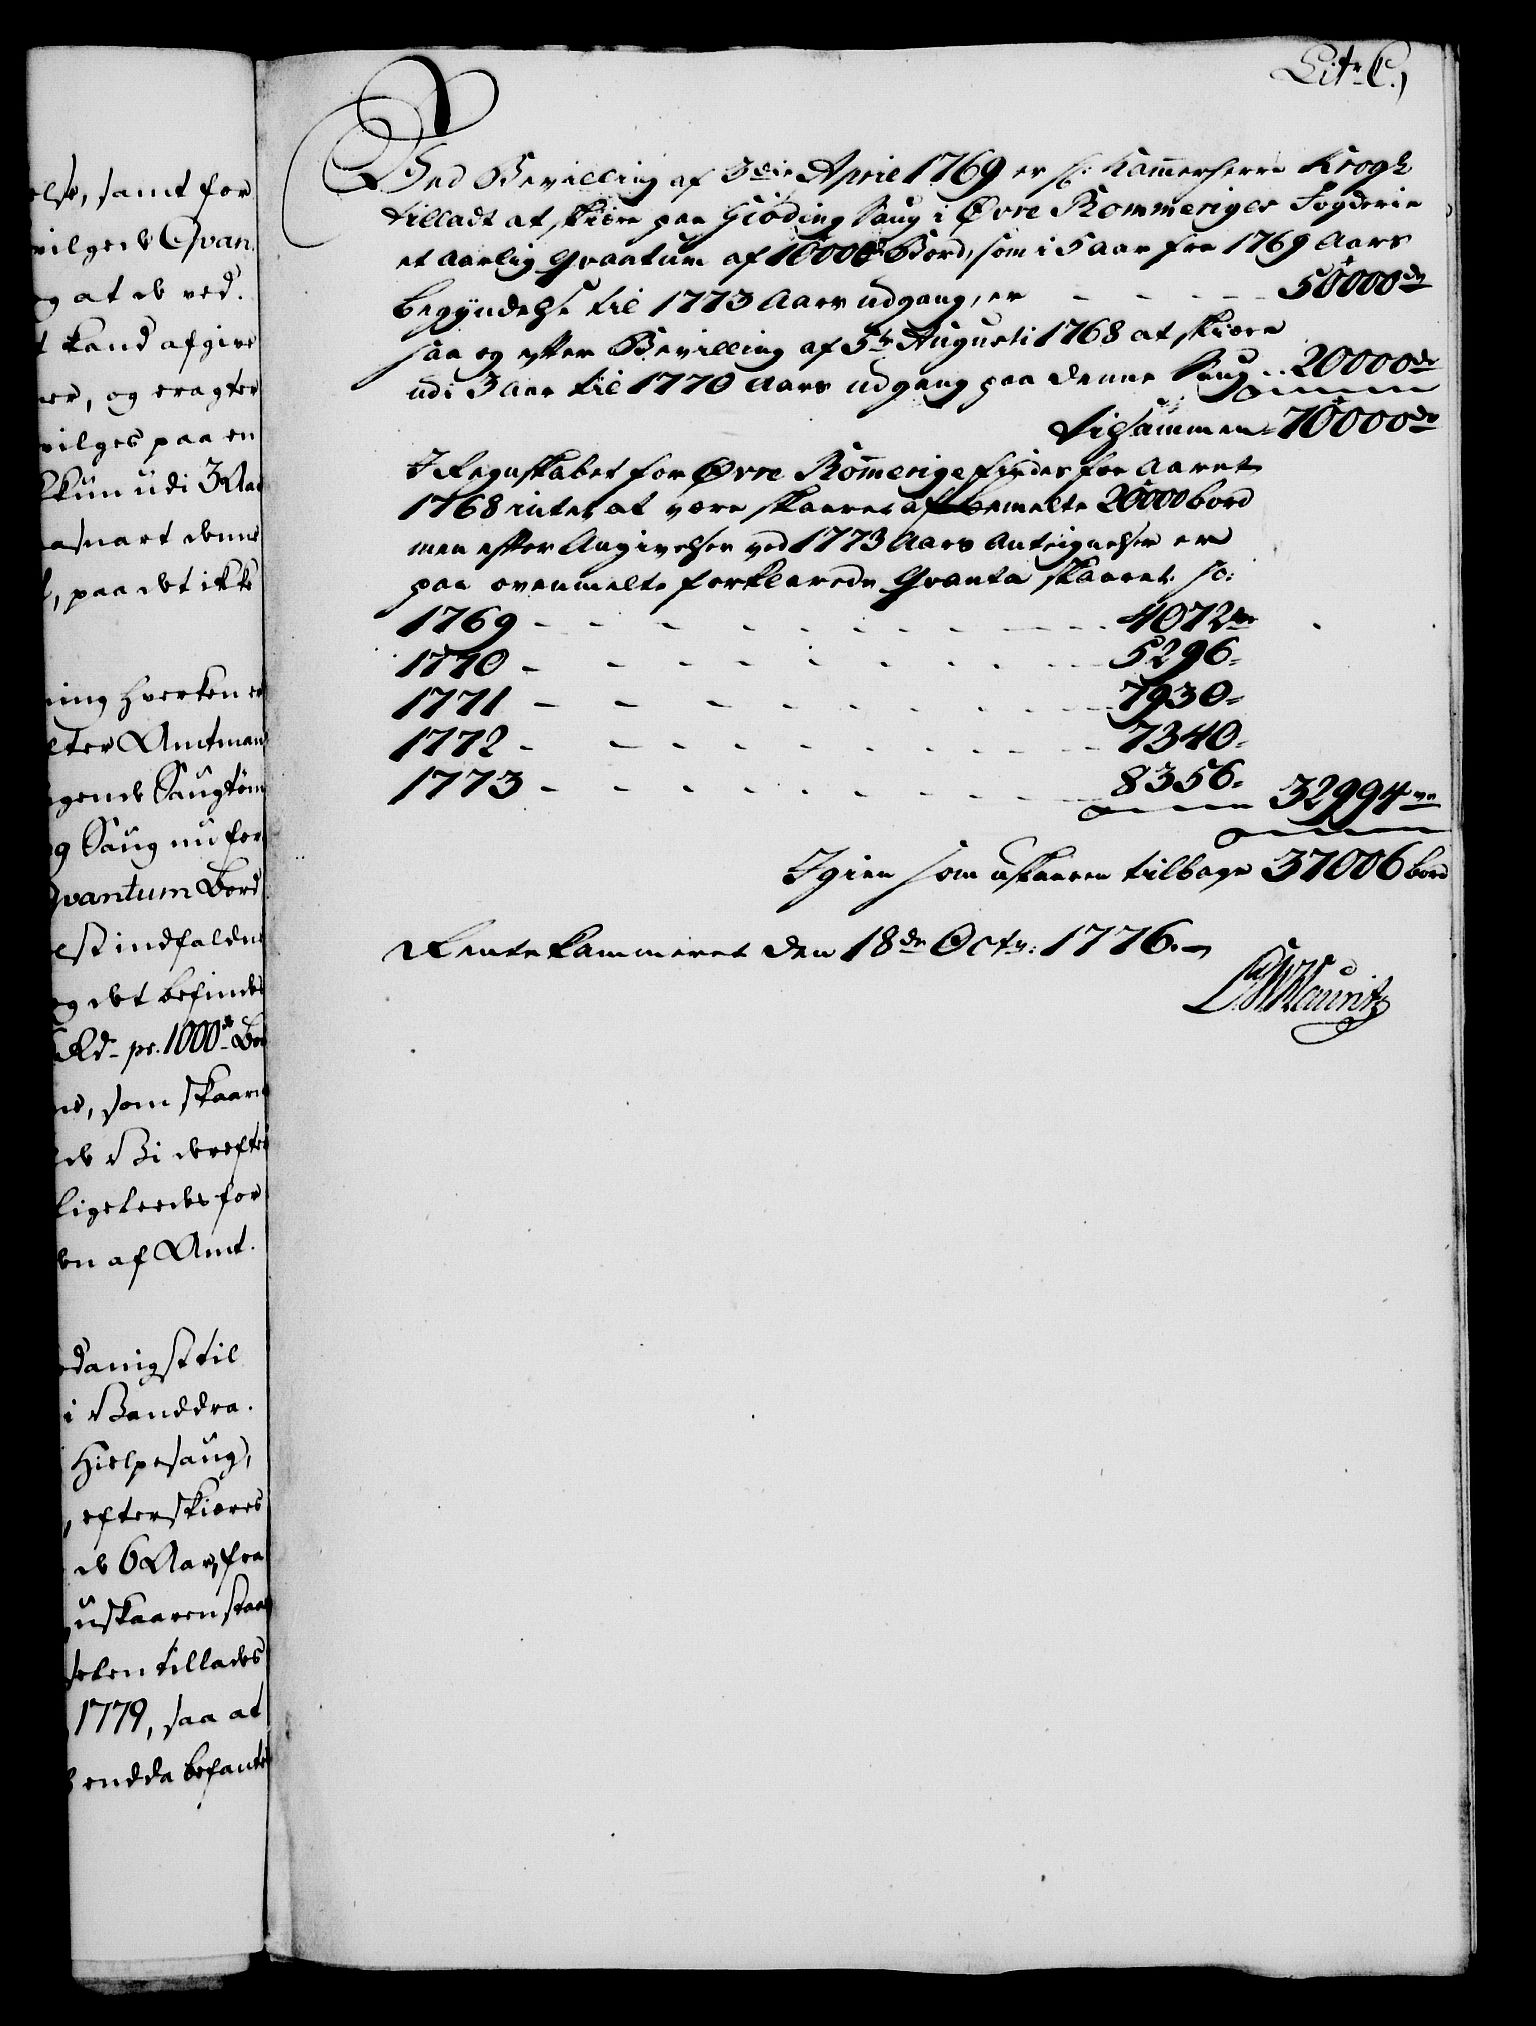 Litr. C.
Ved Bevilling af 3die April 1769 er hr: Kammerherre Krogh
tilladt at skiære paa Giöding Saug i Øvre Rommeriges Fogderie
et Aarlig Qvantum af 10000de Bord, som i 5 Aar fra 1769 Aars
begyndelse til 1773 Aars udgang, er - - - - 50000de
saa og efter Bevilling af 5te Augusti 1768 at skiære
udi 3 Aar til 1770 Aars udgang paa denne Saug .. 20000de
tilsammen 70000de
I Regnskabet for Øvre Rommerige findes for Aaret
1768 intet at være skaaret af bemelte 20000 bord
men efter Angivelser ved 1773 Aars Antegnelser er
paa ovenmelte forklarede Qvanta skaaret so:
1769 - - - - - - - - - 4072de
1770 - - - - - - - - - 5296-
1771 - - - - - - - - - 7930-
1772 - - - - - - - - - 7340-
1773 - - - - - - - - - 8356- 32994
Igien som uskaaren tilbage 37006 bord
Rentekammeret den 18de Octr: 1776.
Mauritz
else, samt for
vilgede Qvan
og at de ved.
t kand afgive
er, og eragter
vilges paa en
kun udi 3 Aar
asnart denne
, paa det ikke
ning hverken
ter Amtmand
gende Saugtöm
g Saug nu for
Qvantum Bord
est indfalden
og det befindes
Rd. pr. 1000de Bor
ne, som skaarn
de Bi derefter
ligeleedes for
en af Amt.
danigst til
i Vanddra.
Hielpesaug,
efterskiæres
de 6 Aar, fra
uskaaren staa
selen tillades
1779, saa at
endda befantes